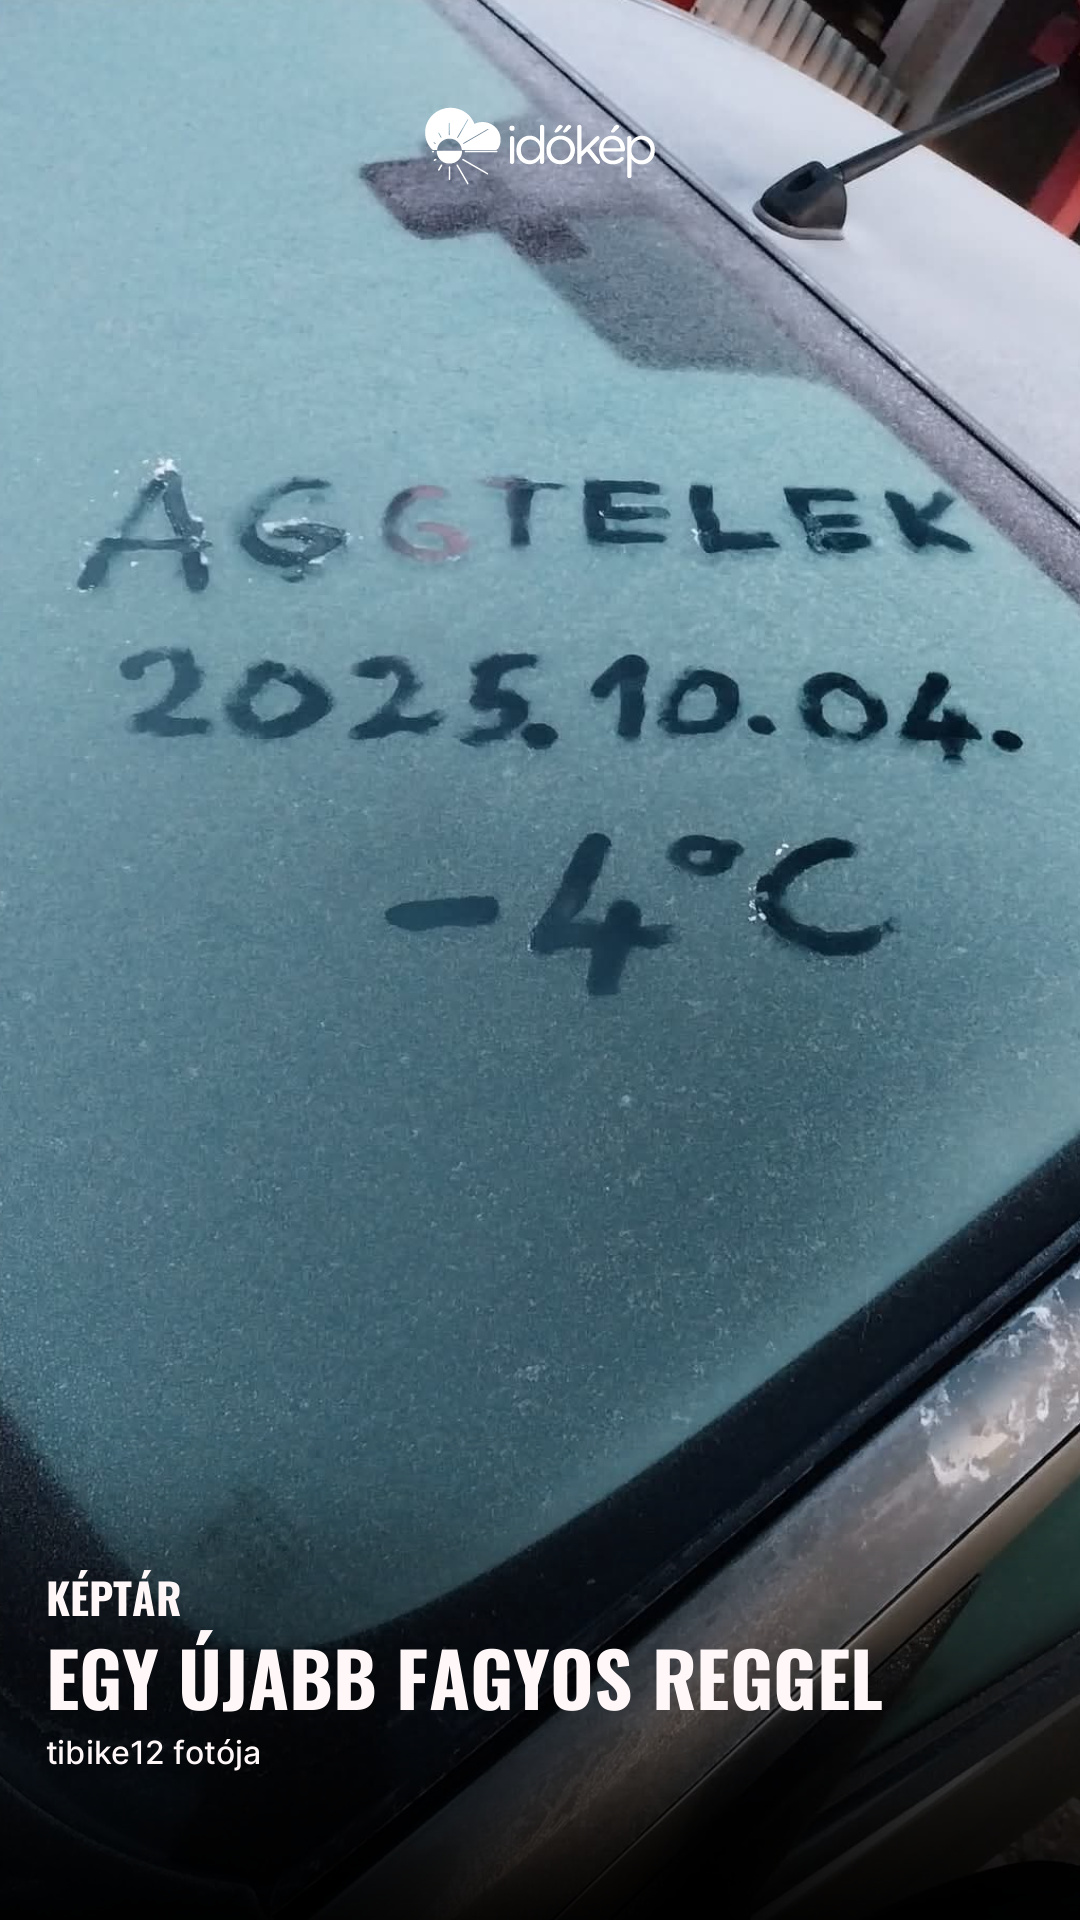 időkép
AGGTELEK
2025.10.04.
-4°C
KÉPTÁR
EGY ÚJABB FAGYOS REGGEL
tibike12 fotója